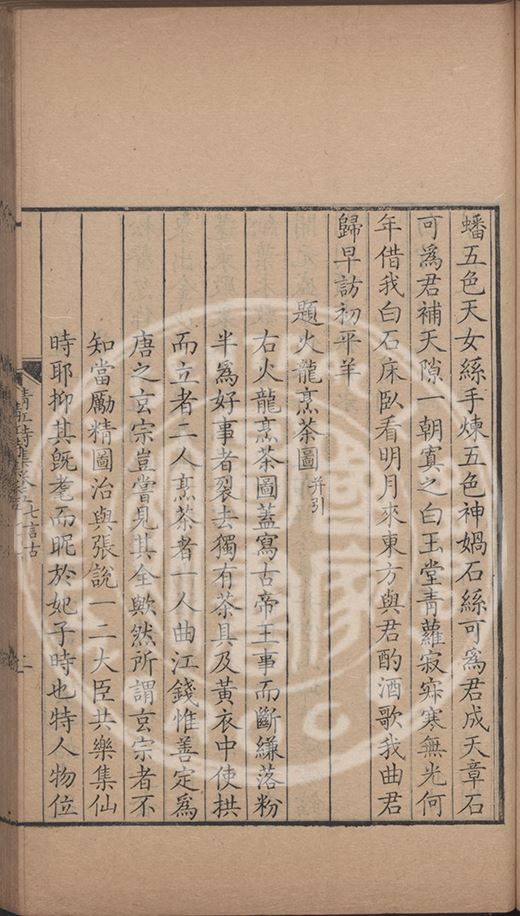 蟠五色天女絲手煉五色神媧石絲可爲君成天章石
可爲君補天隙一朝寘之白玉堂青蘿寂寂寒無光何
年借我白石床臥看明月來東方與君酌酒歌我曲君
歸早訪初平羊
題火龍烹茶圖 并引
右火龍烹茶圖蓋寫古帝王事而斷縑落粉
半爲好事者裂去獨有茶具及黃衣中使拱
而立者二人烹茶者一人曲江錢惟善定爲
唐之玄宗豈嘗見其全歟然所謂玄宗者不
知當勵精圖治與張說一二大臣共樂集仙
時耶抑其既耄而昵於妃子時也特人物位
七言古